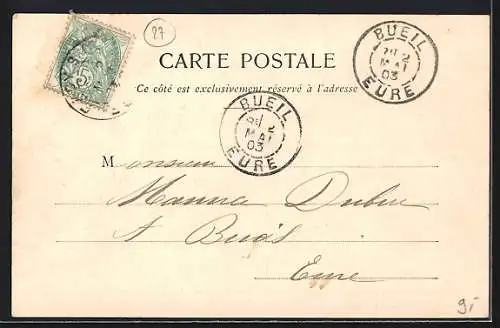 27
CARTE POSTALE
Ce côté est exclusivement réservé à l'adresse
BUEIL
2
MAI
03
EURE
BUEIL
2
MAI
03
EURE
Monsieur
A
Eure
9-